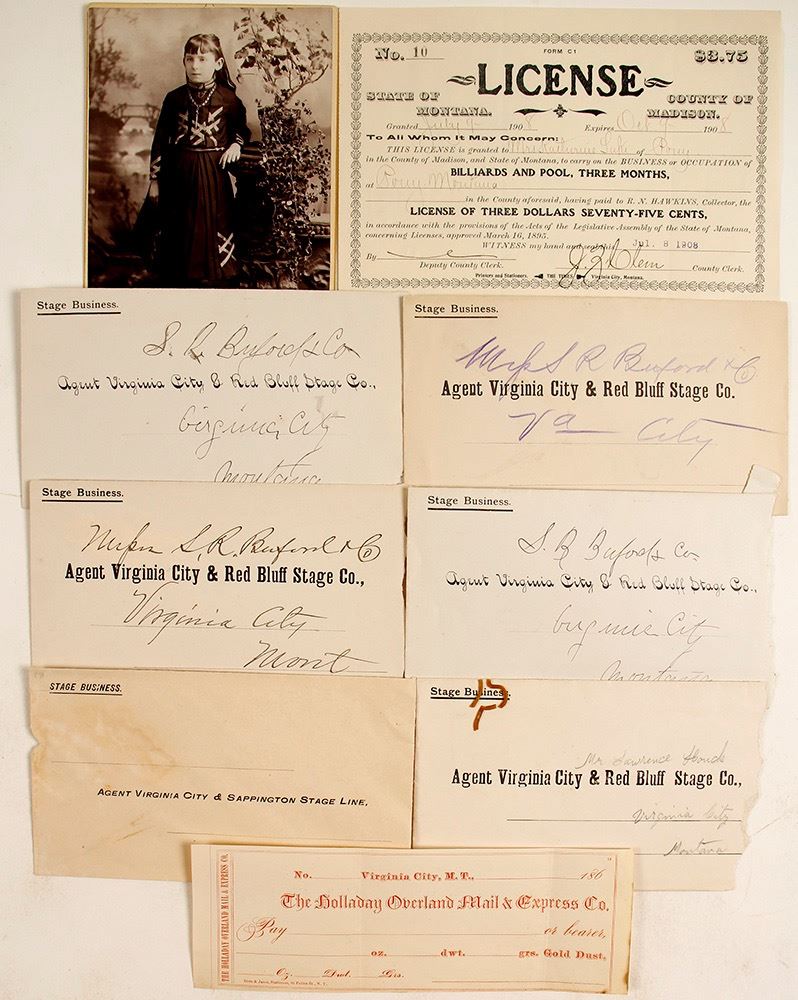 No. 10
FORM C1
$3.75
LICENSE
STATE OF MONTANA.
COUNTY OF MADISON.
Granted July 1908 Expires Oct 1908
To All Whom It May Concern:
THIS LICENSE is granted to Mrs. Katherine of Pony
in the County of Madison, and State of Montana, to carry on the BUSINESS or OCCUPATION of
BILLIARDS AND POOL, THREE MONTHS,
at Pony Montana
in the County aforesaid, having paid to R. N. HAWKINS, Collector, the
LICENSE OF THREE DOLLARS SEVENTY-FIVE CENTS,
in accordance with the provisions of the Acts of the Legislative Assembly of the State of Montana,
concerning Licenses, approved March 16, 1895.
WITNESS my hand and seal this Jul. 8 1908
By
Deputy County Clerk.
County Clerk.
Printers and Stationers. THE TIMES Virginia City, Montana.
Stage Business.
S. R. Buford & Co
Agent Virginia City & Red Bluff Stage Co.,
Virginia City
Montana
Stage Business.
Mess S R Buford & Co
Agent Virginia City & Red Bluff Stage Co.
Va City
Stage Business.
S. R. Buford & Co
Agent Virginia City & Red Bluff Stage Co.,
Virginia City
Mont
Stage Business.
S. R Buford & Co
Agent Virginia City & Red Bluff Stage Co.,
Virginia City
Montana
STAGE BUSINESS.
AGENT VIRGINIA CITY & SAPPINGTON STAGE LINE,
Stage Business.
Mr Lawrence
Agent Virginia City & Red Bluff Stage Co.,
Virginia City
Montana
THE HOLLADAY OVERLAND MAIL & EXPRESS CO.
No. Virginia City, M. T., 186
The Holladay Overland Mail & Express Co.
Pay or bearer,
oz. dwt. grs. Gold Dust.
Oz. Dwt. Grs.